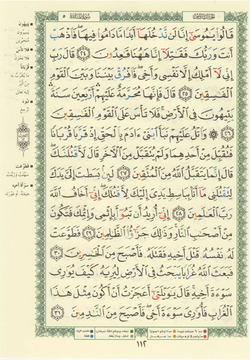 قَالُوا۟ يَـٰمُوسَىٰٓ إِنَّا لَن نَّدْخُلَهَآ أَبَدًا مَّا دَامُوا۟ فِيهَا فَٱذْهَبْ
أَنتَ وَرَبُّكَ فَقَـٰتِلَآ إِنَّا هَـٰهُنَا قَـٰعِدُونَ ٢٤ قَالَ رَبِّ
إِنِّى لَآ أَمْلِكُ إِلَّا نَفْسِى وَأَخِى فَٱفْرُقْ بَيْنَنَا وَبَيْنَ ٱلْقَوْمِ
ٱلْفَـٰسِقِينَ ٢٥ قَالَ فَإِنَّهَا مُحَرَّمَةٌ عَلَيْهِمْ أَرْبَعِينَ سَنَةً
يَتِيهُونَ فِى ٱلْأَرْضِ فَلَا تَأْسَ عَلَى ٱلْقَوْمِ ٱلْفَـٰسِقِينَ
٢٦ وَٱتْلُ عَلَيْهِمْ نَبَأَ ٱبْنَىْ ءَادَمَ بِٱلْحَقِّ إِذْ قَرَّبَا قُرْبَانًا
فَتُقُبِّلَ مِنْ أَحَدِهِمَا وَلَمْ يُتَقَبَّلْ مِنَ ٱلْـَٔاخَرِ قَالَ لَأَقْتُلَنَّكَ
قَالَ إِنَّمَا يَتَقَبَّلُ ٱللَّهُ مِنَ ٱلْمُتَّقِينَ ٢٧ لَئِنۢ بَسَطتَ إِلَىَّ يَدَكَ
لِتَقْتُلَنِى مَآ أَنَا۠ بِبَاسِطٍ يَدِىَ إِلَيْكَ لِأَقْتُلَكَ إِنِّىٓ أَخَافُ ٱللَّهَ
رَبَّ ٱلْعَـٰلَمِينَ ٢٨ إِنِّىٓ أُرِيدُ أَن تَبُوٓأَ بِإِثْمِى وَإِثْمِكَ فَتَكُونَ
مِنْ أَصْحَـٰبِ ٱلنَّارِ وَذَٰلِكَ جَزَٰٓؤُا۟ ٱلظَّـٰلِمِينَ ٢٩ فَطَوَّعَتْ
لَهُۥ نَفْسُهُۥ قَتْلَ أَخِيهِ فَقَتَلَهُۥ فَأَصْبَحَ مِنَ ٱلْخَـٰسِرِينَ ٣٠
فَبَعَثَ ٱللَّهُ غُرَابًا يَبْحَثُ فِى ٱلْأَرْضِ لِيُرِيَهُۥ كَيْفَ يُوَٰرِى
سَوْءَةَ أَخِيهِ قَالَ يَـٰوَيْلَتَىٰٓ أَعَجَزْتُ أَنْ أَكُونَ مِثْلَ هَـٰذَا
ٱلْغُرَابِ فَأُوَٰرِىَ سَوْءَةَ أَخِى فَأَصْبَحَ مِنَ ٱلنَّـٰدِمِينَ ٣١
١١٢